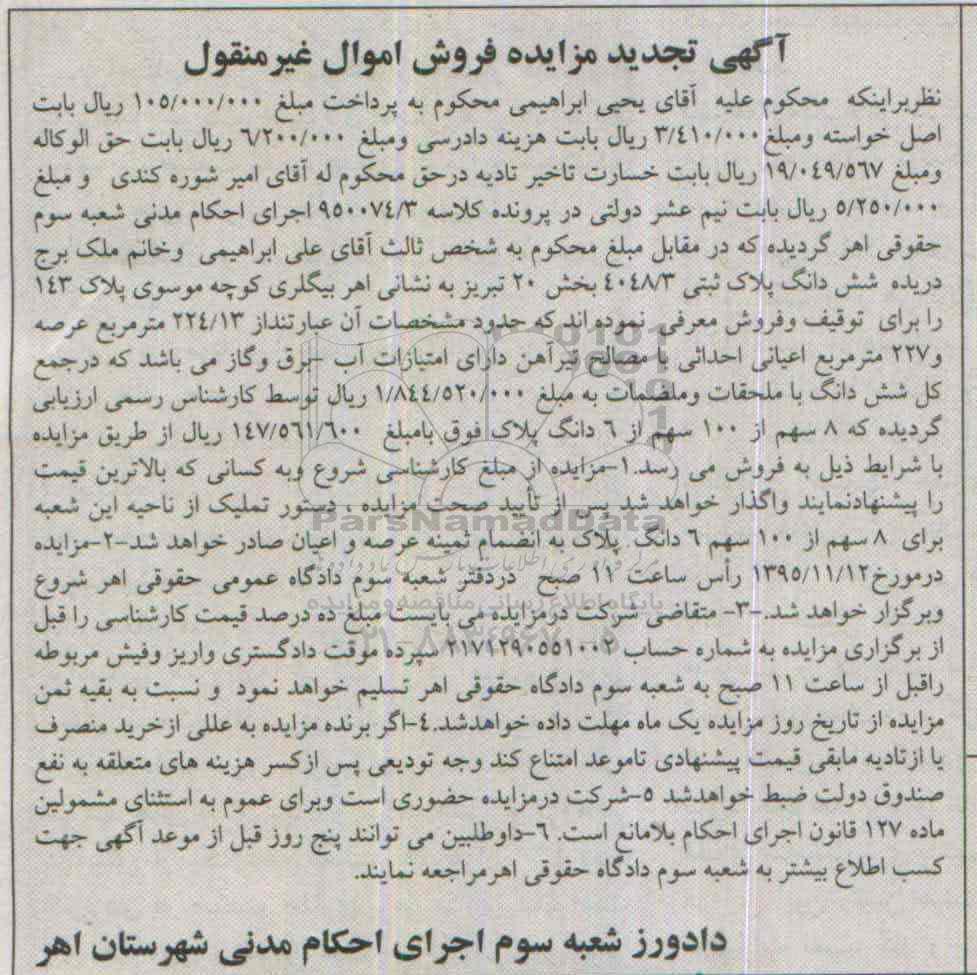 آگهی تجدید مزایده فروش اموال غیرمنقول
نظربراینکه محکوم علیه آقای یحیی ابراهیمی محکوم به پرداخت مبلغ ۱۰۵/۰۰۰/۰۰۰ ریال بابت
اصل خواسته ومبلغ ۳/۴۱۰/۰۰۰ ریال بابت هزینه دادرسی ومبلغ ۶/۲۰۰/۰۰۰ ریال بابت حق الوکاله
ومبلغ ۱۹/۰۴۹/۵۶۷ ریال بابت خسارت تاخیر تادیه درحق محکوم له آقای امیر شوره کندی و مبلغ
۵/۲۵۰/۰۰۰ ریال بابت نیم عشر دولتی در پرونده کلاسه ۹۵۰۰۷۴/۳ اجرای احکام مدنی شعبه سوم
حقوقی اهر گردیده که در مقابل مبلغ محکوم به شخص ثالث آقای علی ابراهیمی وخانم ملک برج
دریده شش دانگ پلاک ثبتی ۴۰۴۸/۳ بخش ۲۰ تبریز به نشانی اهر بیگلری کوچه موسوی پلاک ۱۴۳
را برای توقیف وفروش معرفی نموده اند که حدود مشخصات آن عبارتنداز ۲۲۴/۱۳ مترمربع عرصه
و۲۲۷ مترمربع اعیانی احداثی با مصالح تیرآهن دارای امتیازات آب -برق وگاز می باشد که درجمع
کل شش دانگ با ملحقات ومنضمات به مبلغ ۱/۸۴۴/۵۲۰/۰۰۰ ریال توسط کارشناس رسمی ارزیابی
گردیده که ۸ سهم از ۱۰۰ سهم از ۶ دانگ پلاک فوق بامبلغ ۱۴۷/۵۶۱/۶۰۰ ریال از طریق مزایده
با شرایط ذیل به فروش می رسد.۱-مزایده از مبلغ کارشناسی شروع وبه کسانی که بالاترین قیمت
را پیشنهادنمایند واگذار خواهد شد پس از تأیید صحت مزایده ، دستور تملیک از ناحیه این شعبه
برای ۸ سهم از ۱۰۰ سهم ۶ دانگ پلاک به انضمام ثمینه عرصه و اعیان صادر خواهد شد-۲-مزایده
درمورخ۱۳۹۵/۱۱/۱۲ رأس ساعت ۱۱ صبح دردفتر شعبه سوم دادگاه عمومی حقوقی اهر شروع
وبرگزار خواهد شد.-۳- متقاضی شرکت درمزایده می بایست مبلغ ده درصد قیمت کارشناسی را قبل
از برگزاری مزایده به شماره حساب ۲۱۷۱۲۹۰۵۵۱۰۰۲ سپرده موقت دادگستری واریز وفیش مربوطه
راقبل از ساعت ۱۱ صبح به شعبه سوم دادگاه حقوقی اهر تسلیم خواهد نمود و نسبت به بقیه ثمن
مزایده از تاریخ روز مزایده یک ماه مهلت داده خواهدشد.۴-اگر برنده مزایده به عللی ازخرید منصرف
یا ازتادیه مابقی قیمت پیشنهادی تاموعد امتناع کند وجه تودیعی پس ازکسر هزینه های متعلقه به نفع
صندوق دولت ضبط خواهدشد ۵-شرکت درمزایده حضوری است وبرای عموم به استثنای مشمولین
ماده ۱۲۷ قانون اجرای احکام بلامانع است. ۶-داوطلبین می توانند پنج روز قبل از موعد آگهی جهت
کسب اطلاع بیشتر به شعبه سوم دادگاه حقوقی اهرمراجعه نمایند.
دادورز شعبه سوم اجرای احکام مدنی شهرستان اهر
ParsNamadData
پایگاه اطلاع رسانی مناقصه و مزایده
۰۲۱-۸۸۳۴۹۶۷۰-۵